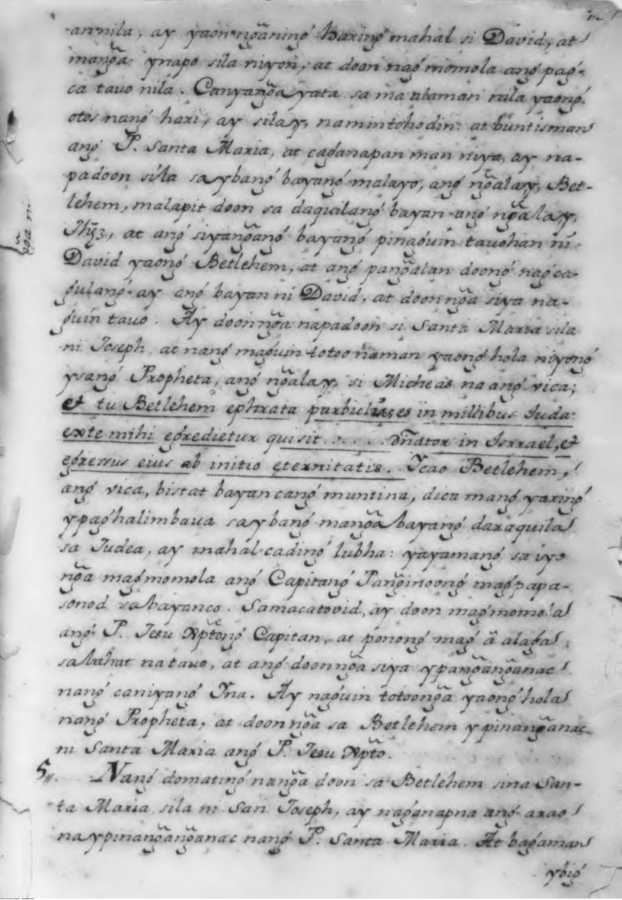 an nila, ay yaon ngãning haring mahal si David, at
mangã ynapo sila niyon, at doon nag momola ang pag-
ca tauo nila. Canyangã yata sa ma utaman nila yaong
otos nang hari, ay silay, namintohodin: at buntisman
ang P. Santa Maria, at caganapan man niya, ay na-
padoon sila sa ybang bayang malayo, ang ngãlay, Bet-
lehem, malapit doon sa daquilang bayan ang ngãlay,
at ang siyangãng bayang pinaguin tauohan ni
David yaong Betlehem, at ang pangãlan doong nag ca-
gulang ay ang bayan ni David, at doon ngã siya na-
guin tauo. Ay doon ngã napadoon si Santa Maria sila
ni Joseph, at nang maguin totoo naman yaong hola niyong
ysang Propheta, ang ngãlay, si Micheas na ang vica;
et tu Betlehem ephrata parbulus es in millibus Juda:
ex te mihi egredietur qui sit .... Dñator in Israel, et
egressus eius ab initio eternitatis. Icao Betlehem,
ang vica, bistat bayan cang muntina, dica mang yaring
ypaghalimbaua sa ybang mangã bayang daraquila
sa Judea, ay mahal ca ding lubha: yayamang sa iyo
ngã magmomola ang Capitang Pangĩnoong magpapa-
sonod sa bayan co. Samacatovid, ay doon magmomola
ang P. Jesu Xptõng Capitan, at ponong mag ã alaga
sa lahat na tauo, at ang doon ngã siya ypangãngãnac
nang caniyang Yna. Ay naguin totoo ngã yaong hola
nang Propheta, at doon ngã sa Betlehem ypinangãnac
ni Santa Maria ang P. Jesu Xpto.
5. Nang domating nangã doon sa Betlehem sina San-
ta Maria sila ni San Joseph, ay naganapna ang arao
na ypinangãngãnac nang P. Santa Maria. At bagaman
ybig
ngã ni